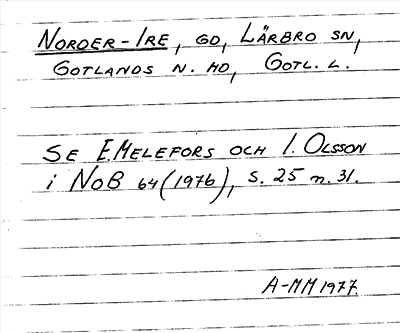 NORDER-IRE, GD, LÄRBRO SN,
GOTLANDS N. HD, GOTL. L.
SE E.MELEFORS OCH I. OLSSON
i NoB 64 (1976), S. 25 m. 31.
A-MM 1977